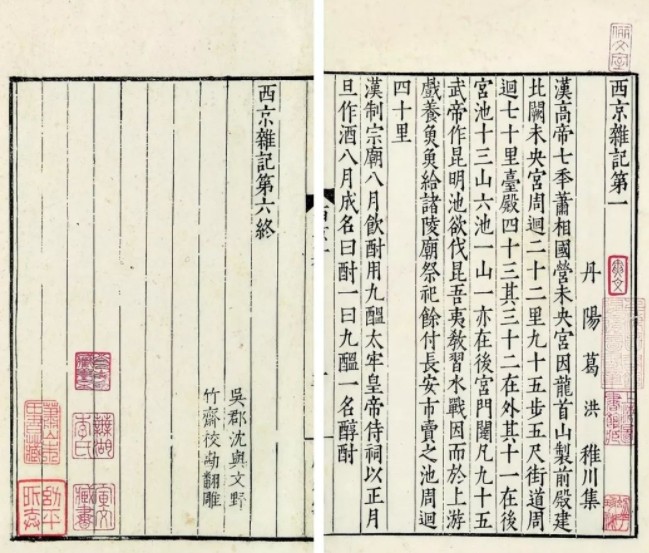 西京雜記第一
丹陽葛洪稚川集
漢高帝七季蕭相國營未央宮因龍首山製前殿建
北闕未央宮周迴二十二里九十五步五尺街道周
迴七十里臺殿四十三其三十二在外其十一在後
宮池十三山六池一山一亦在後宮門闥凡九十五
武帝作昆明池欲伐昆吾夷敎習水戰因而於上游
戲養魚魚給諸陵廟祭祀餘付長安市賣之池周迴
四十里
漢制宗廟八月飲酎用九醞太牢皇帝侍祠以正月
旦作酒八月成名曰酎一曰九醞一名醇酎
西京雜記第六終
吳郡沈與文野
竹齋校勘翻雕
蕪湖李氏